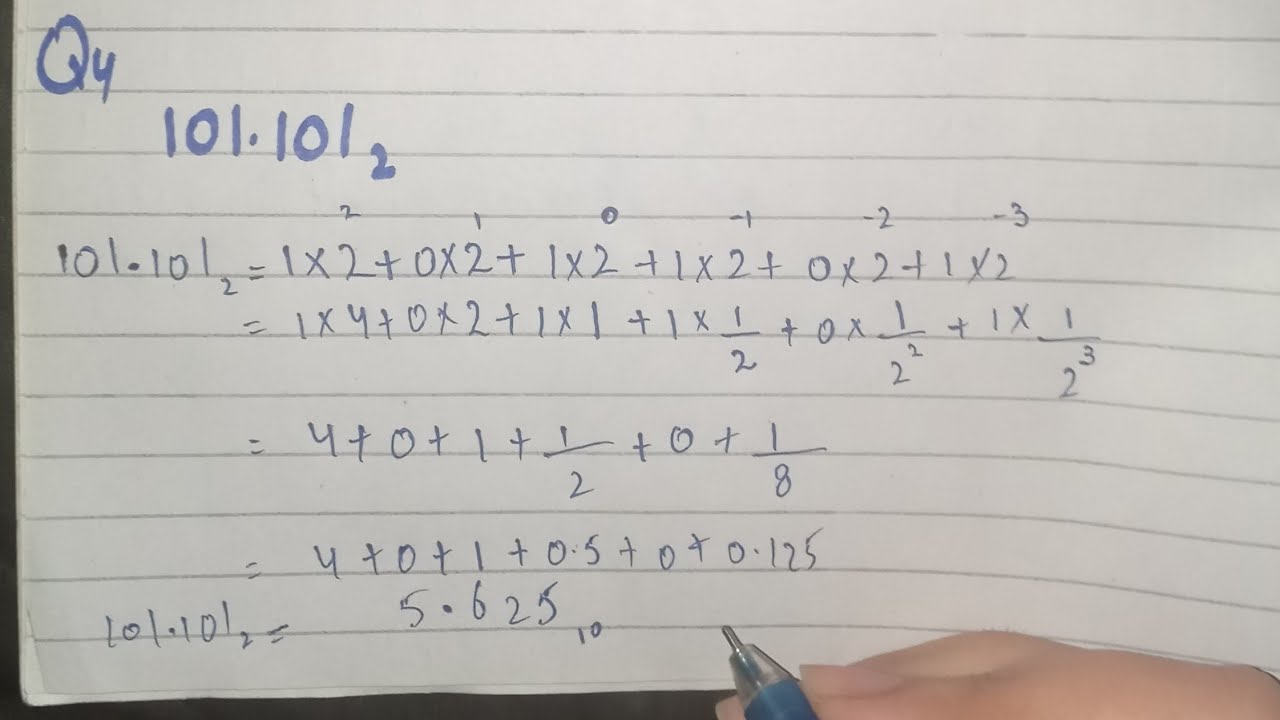 Q4
101.101₂
101.101₂ = 1×2² + 0×2¹ + 1×2⁰ + 1×2⁻¹ + 0×2⁻² + 1×2⁻³
= 1×4 + 0×2 + 1×1 + 1×1/2 + 0×1/2² + 1×1/2³
= 4 + 0 + 1 + 1/2 + 0 + 1/8
= 4 + 0 + 1 + 0.5 + 0 + 0.125
101.101₂ = 5.625₁₀